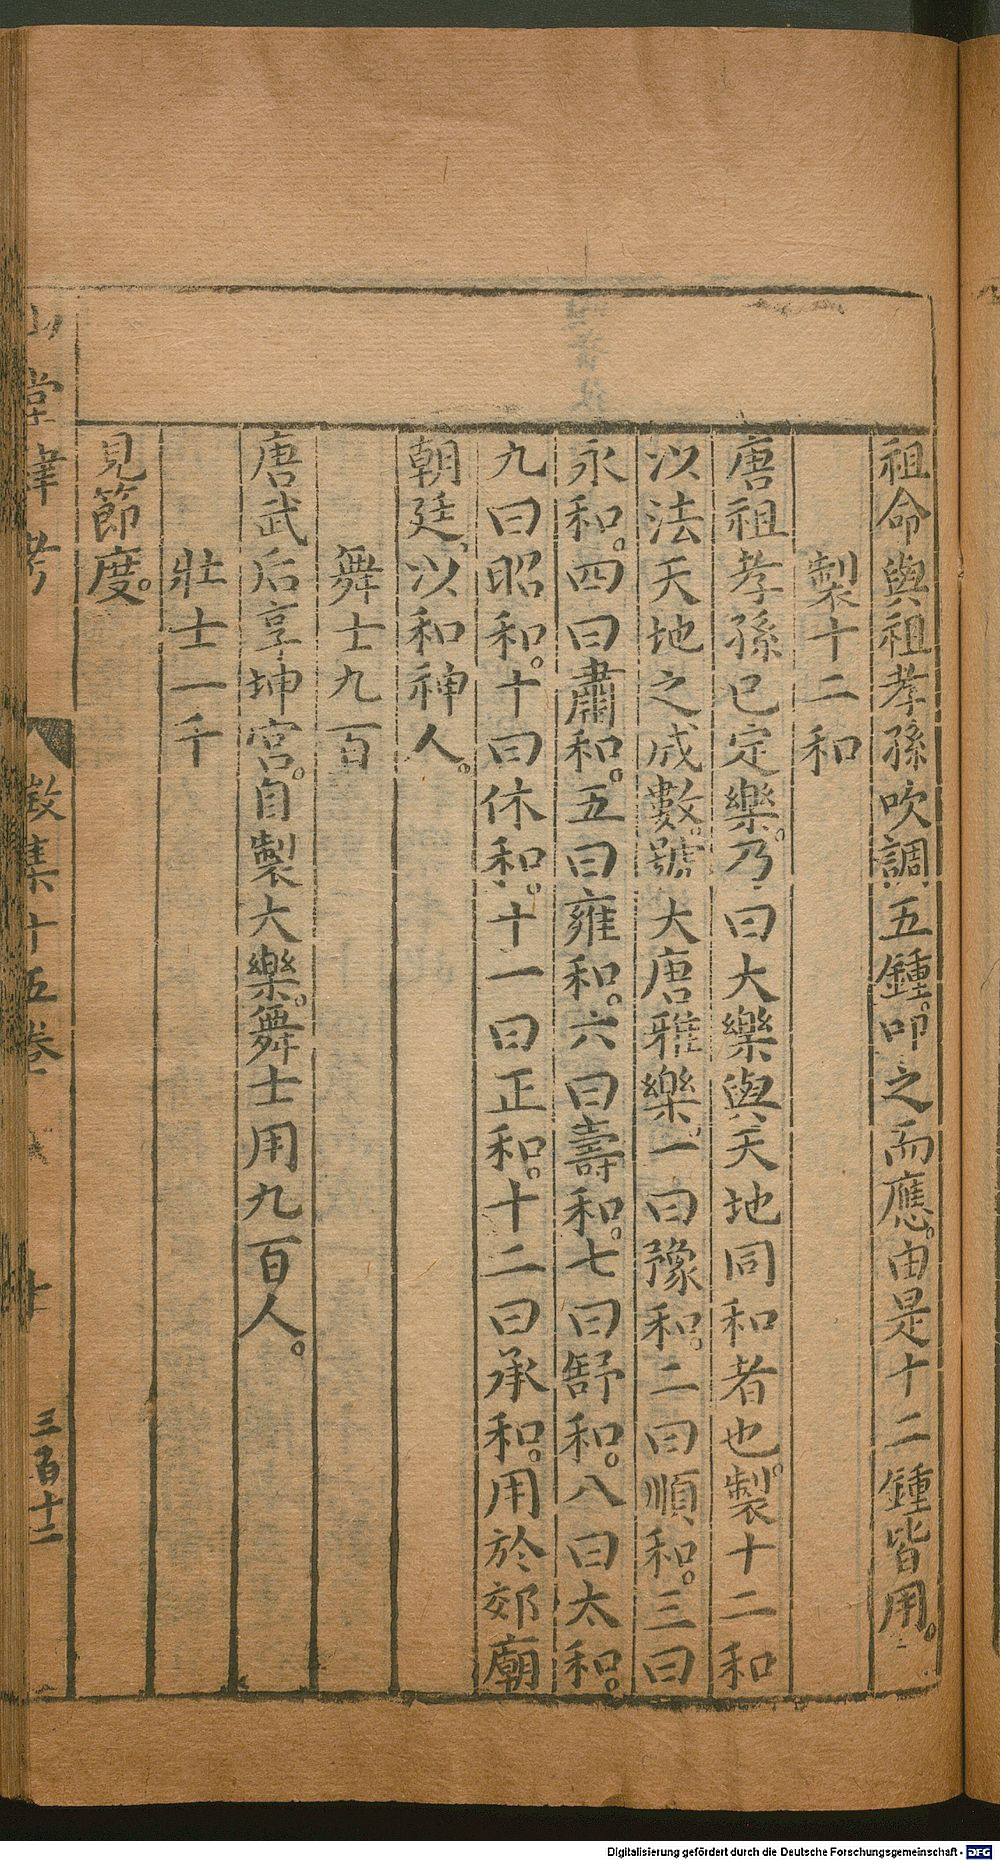 祖命與祖孝孫吹調五鍾。叩之而應。由是十二鍾皆用。
製十二和
唐祖孝孫已定樂。乃曰大樂與天地同和者也。製十二和
以法天地之成數。號大唐雅樂。一曰豫和。二曰順和。三曰
永和。四曰肅和。五曰雍和。六曰壽和。七曰舒和。八曰太和。
九曰昭和。十曰休和。十一曰正和。十二曰承和。用於郊廟
朝廷、以和神人。
舞士九百
唐武后享坤宮。自製大樂。舞士用九百人。
壯士一千
見節度。
山堂肆考
徵集十五卷
十
三百十二
Digitalisierung gefördert durch die Deutsche Forschungsgemeinschaft - DFG